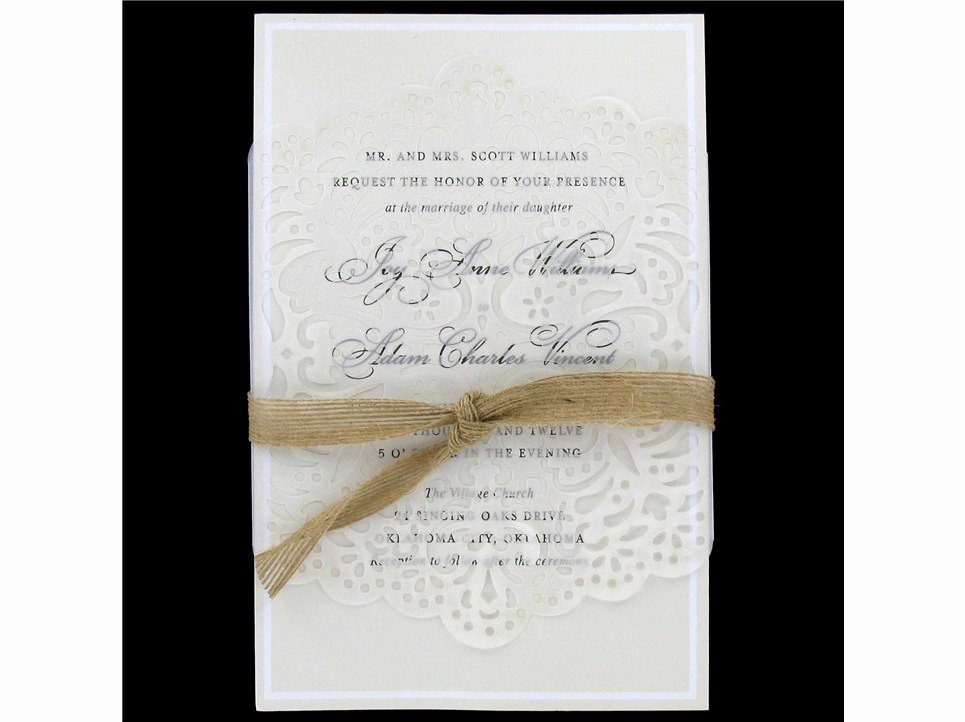 MR. AND MRS. SCOTT WILLIAMS
REQUEST THE HONOR OF YOUR PRESENCE
at the marriage of their daughter
Joy Anne Williams
to
Adam Charles Vincent
AND TWELVE
5 O' IN THE EVENING
The Village Church
SINGING OAKS DRIVE
OKLAHOMA CITY, OKLAHOMA
Reception to follow after the ceremony